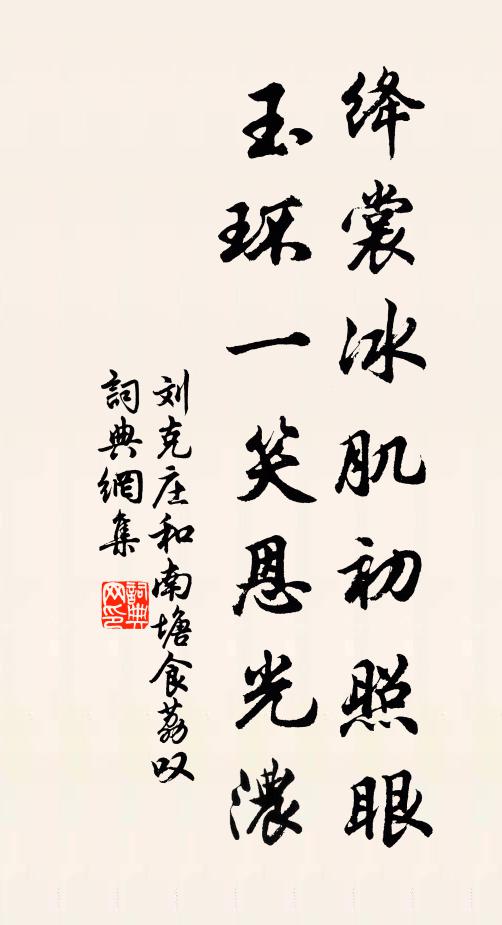 绛裳冰肌初照眼
玉环一笑恩光濃
刘克庄和南塘食荔叹
詞典網集
詞典网印